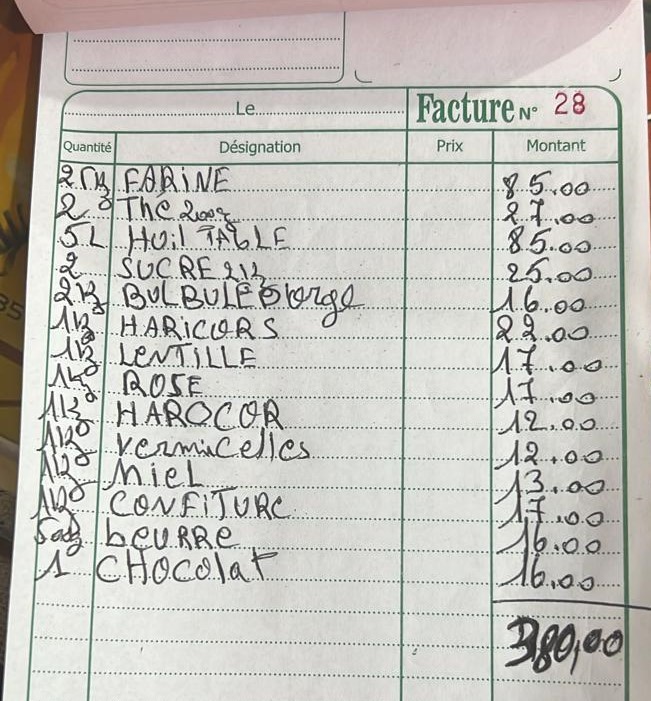 Le Facture N° 28
Quantité Désignation Prix Montant
FARINE 85.00
2 Thé 200g 27.00
5L HUil TABLE 85.00
2 SUCRE 2K 25.00
2Kg BULBULE orge 16.00
1Kg HARiCORS 22.00
1Kg LENTILLE 17.00
1Kg ROSE 17.00
1Kg HAROCOR 12.00
1Kg Vermicelles 12.00
1Kg MiEL 13.00
1Kg CONFiTURE 17.00
500g beURRe 16.00
1 CHOColat 16.00
380,00